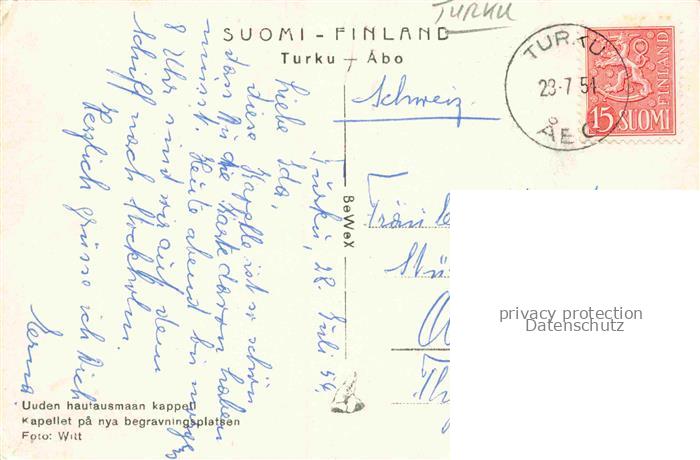 TURKU
SUOMI - FINLAND
Turku - Åbo
TURKU
23-7 54
ÅBO
15 SUOMI
FINLAND
Schweiz
Turku, 22. Juli 54.
Liebe Ida,
diese Kapelle ist so schön
dass Du die Karte davon haben
musst. Heute abend bis morgen
8 Uhr sind wir auf dem
Schiff nach Stockholm.
Herzlich grüsse ich Dich
Erna
BeWeX
Fräulein
Th
privacy protection
Datenschutz
Uuden hautausmaan kappeli
Kapellet på nya begravningsplatsen
Foto: Witt